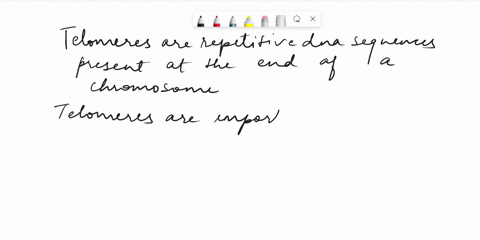 Telomeres are repetitive dna sequences
present at the end of a
chromosome
Telomeres are impor